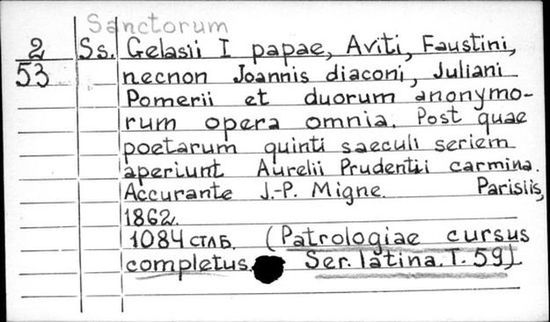 Sanctorum
2 Ss. Gelasii I papae, Aviti, Faustini,
53 necnon Joannis diaconi, Juliani
Pomerii et duorum anonymo-
rum opera omnia. Post quae
poetarum quinti saeculi seriem
aperiunt Aurelii Prudentii carmina.
Accurante J.-P. Migne. Parisiis,
1862.
1084 стлб. (Patrologiae cursus
completus. Ser. latina. T. 59)